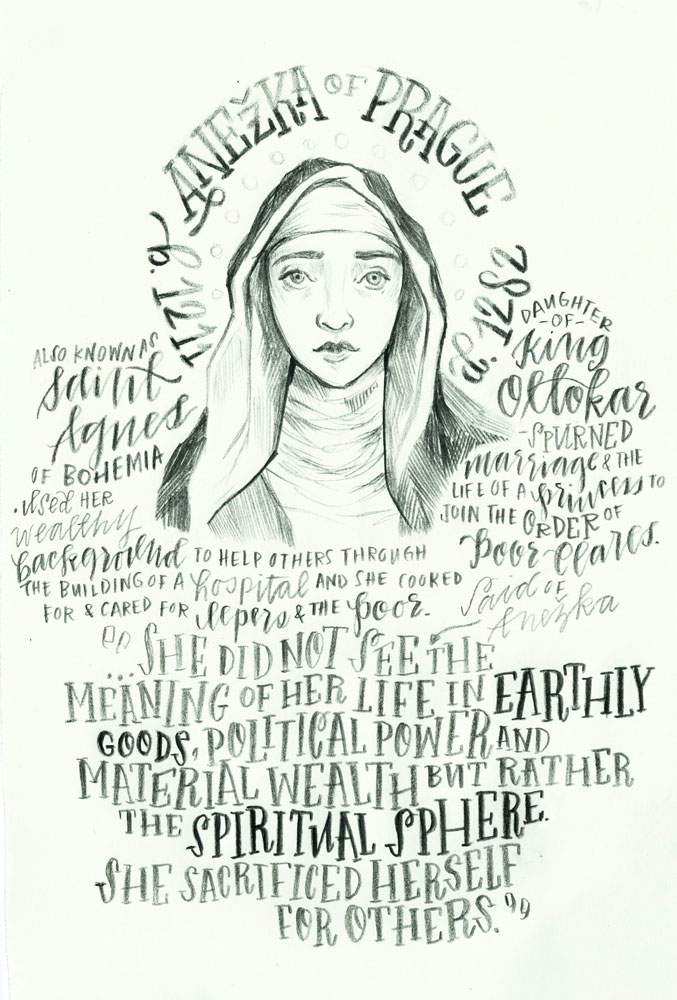 ANEŽKA OF PRAGUE
b. 1211
d. 1282
ALSO KNOWN AS
Saint
Agnes
OF BOHEMIA
. Used HER
wealthy
background TO HELP OTHERS THROUGH
THE BUILDING OF A hospital AND SHE COOKED
FOR & CARED FOR lepers & THE poor.
DAUGHTER
-OF-
King
Ottokar
-SPURNED
marriage & THE
LIFE OF A princess TO
JOIN THE ORDER OF
Poor Clares.
Said OF
Anežka
"...SHE DID NOT SEE THE
MEANING OF HER LIFE IN EARTHLY
GOODS, POLITICAL POWER AND
MATERIAL WEALTH BUT RATHER
THE SPIRITUAL SPHERE.
SHE SACRIFICED HERSELF
FOR OTHERS."